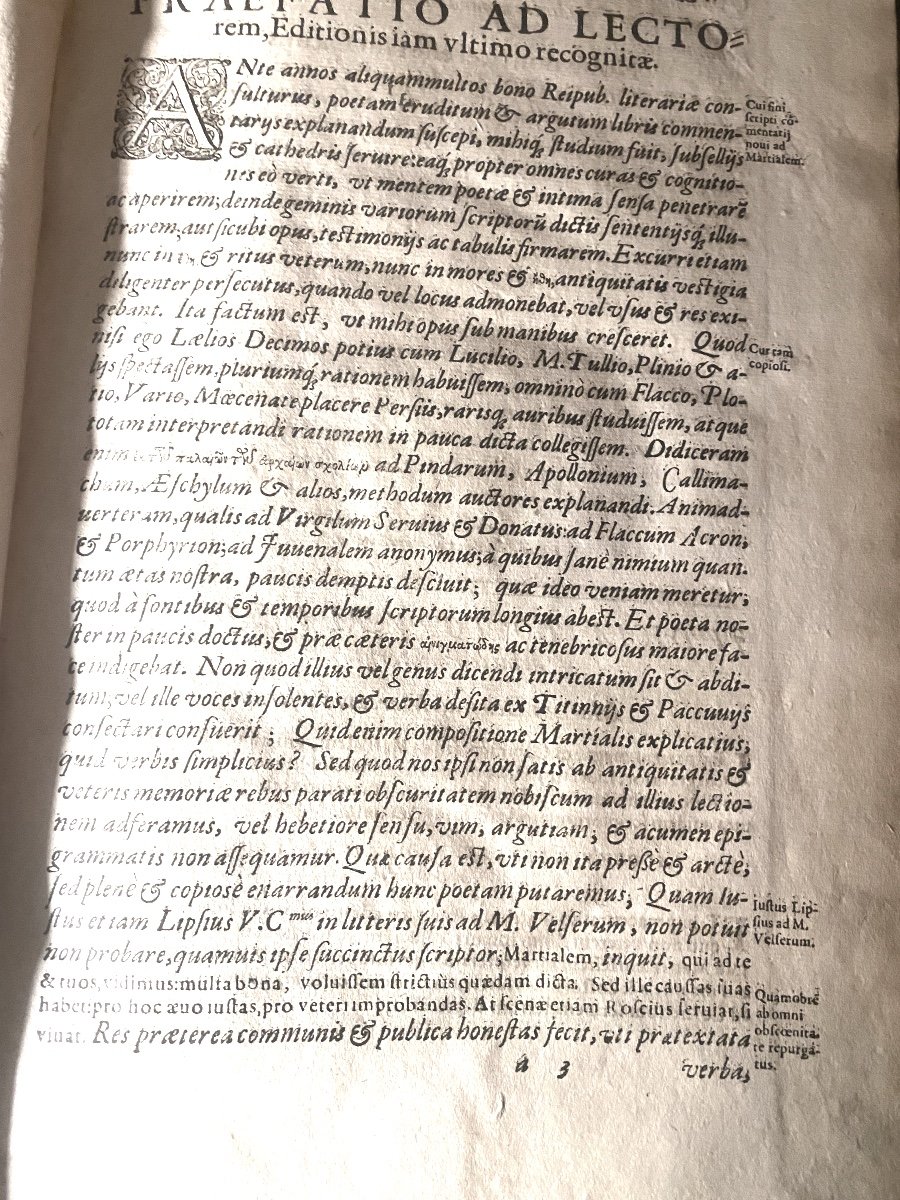 PRAEFATIO AD LECTO=
rem, Editionis iam vltimo recognitæ.
ANte annos aliquammultos bono Reipub. literariæ con-
sulturus, poetam eruditum & argutum libris commen-
tarys explanandum suscepi, mihiq́; studium fuit, subsellijs
& cathedris seruire: eaq́; propter omnes curas & cognitio-
nes eò verti, vt mentem poetæ & intima sensa penetrarē
ac aperirem; deinde geminis variorum scriptorũ dictis sententijsq́; illu-
strarem; aut sicubi opus, testimonijs ac tabulis firmarem. Excurri etiam
nunc in & ritus veterum, nunc in mores & antiquitatis vestigia
diligenter persecutus, quando vel locus admonebat, vel vsus & res exi-
gebant. Ita factum est, vt mihi opus sub manibus cresceret. Quod
nisi ego Lælios Decimos potius cum Lucilio, M. Tullio, Plinio & a-
lijs spectassem, pluriumq́; rationem habuissem; omninò cum Flacco, Plo-
tio, Vario, Mœcenate placere Persiis, rarisq́; auribus studuissem, atque
totam interpretandi rationem in pauca dicta collegissem. Didiceram
enim ἐκ τῶν παλαιῶν τῶν ἀρχαίων σχολίων ad Pindarum, Apollonium, Callima-
chum, Æschylum & alios, methodum auctores explanandi. Animad-
uerteram, qualis ad Virgilum Seruius & Donatus: ad Flaccum Acron,
& Porphyrion; ad Juuenalem anonymus; à quibus sanè nimium quan-
tum ætas nostra, paucis demptis desciuit; quæ ideo veniam meretur;
quod à fontibus & temporibus scriptorum longius abest. Et poeta no-
ster in paucis doctus, & præ cæteris αἰνιγματώδης ac tenebricosus maiore fa-
ce indigebat. Non quod illius vel genus dicendi intricatum sit & abdi-
tum, vel ille voces insolentes, & verba desita ex Titinnijs & Paccuuijs
consectari consuêrit; Quid enim compositione Martialis explicatius,
quid verbis simplicius? Sed quod nos ipsi non satis ab antiquitatis &
veteris memoriæ rebus parati obscuritatem nobiscum ad illius lectio-
nem adferamus, vel hebetiore sensu, vim, argutiam, & acumen epi-
grammatis non assequamur. Quæ causa est, vti non ita presse & arctè,
sed plenè & copiosè enarrandum hunc poetam putaremus; Quam Iu-
stus etiam Lipsius V.C.mus in litteris suis ad M. Velserum, non potuit
non probare, quamuis ipse succinctus scriptor; Martialem, inquit, qui ad te
& tuos, vidimus: multa bona, voluissem strictius quædam dicta. Sed ille caussas suas
habet: pro hoc æuo iustas, pro veteri improbandas. At scenæ etiam Roscius seruiat, si
viuat. Res præterea communis & publica honestas fecit, vti prætextata
a 3 verba,
Cui fini
scripti cō-
mentatij
noui ad
Martialem.
Cur tam
copiosi.
Iustus Lip-
sius ad M.
Velserum.
Quamobrē
ab omni
obscœnita-
te repurgá-
tus.